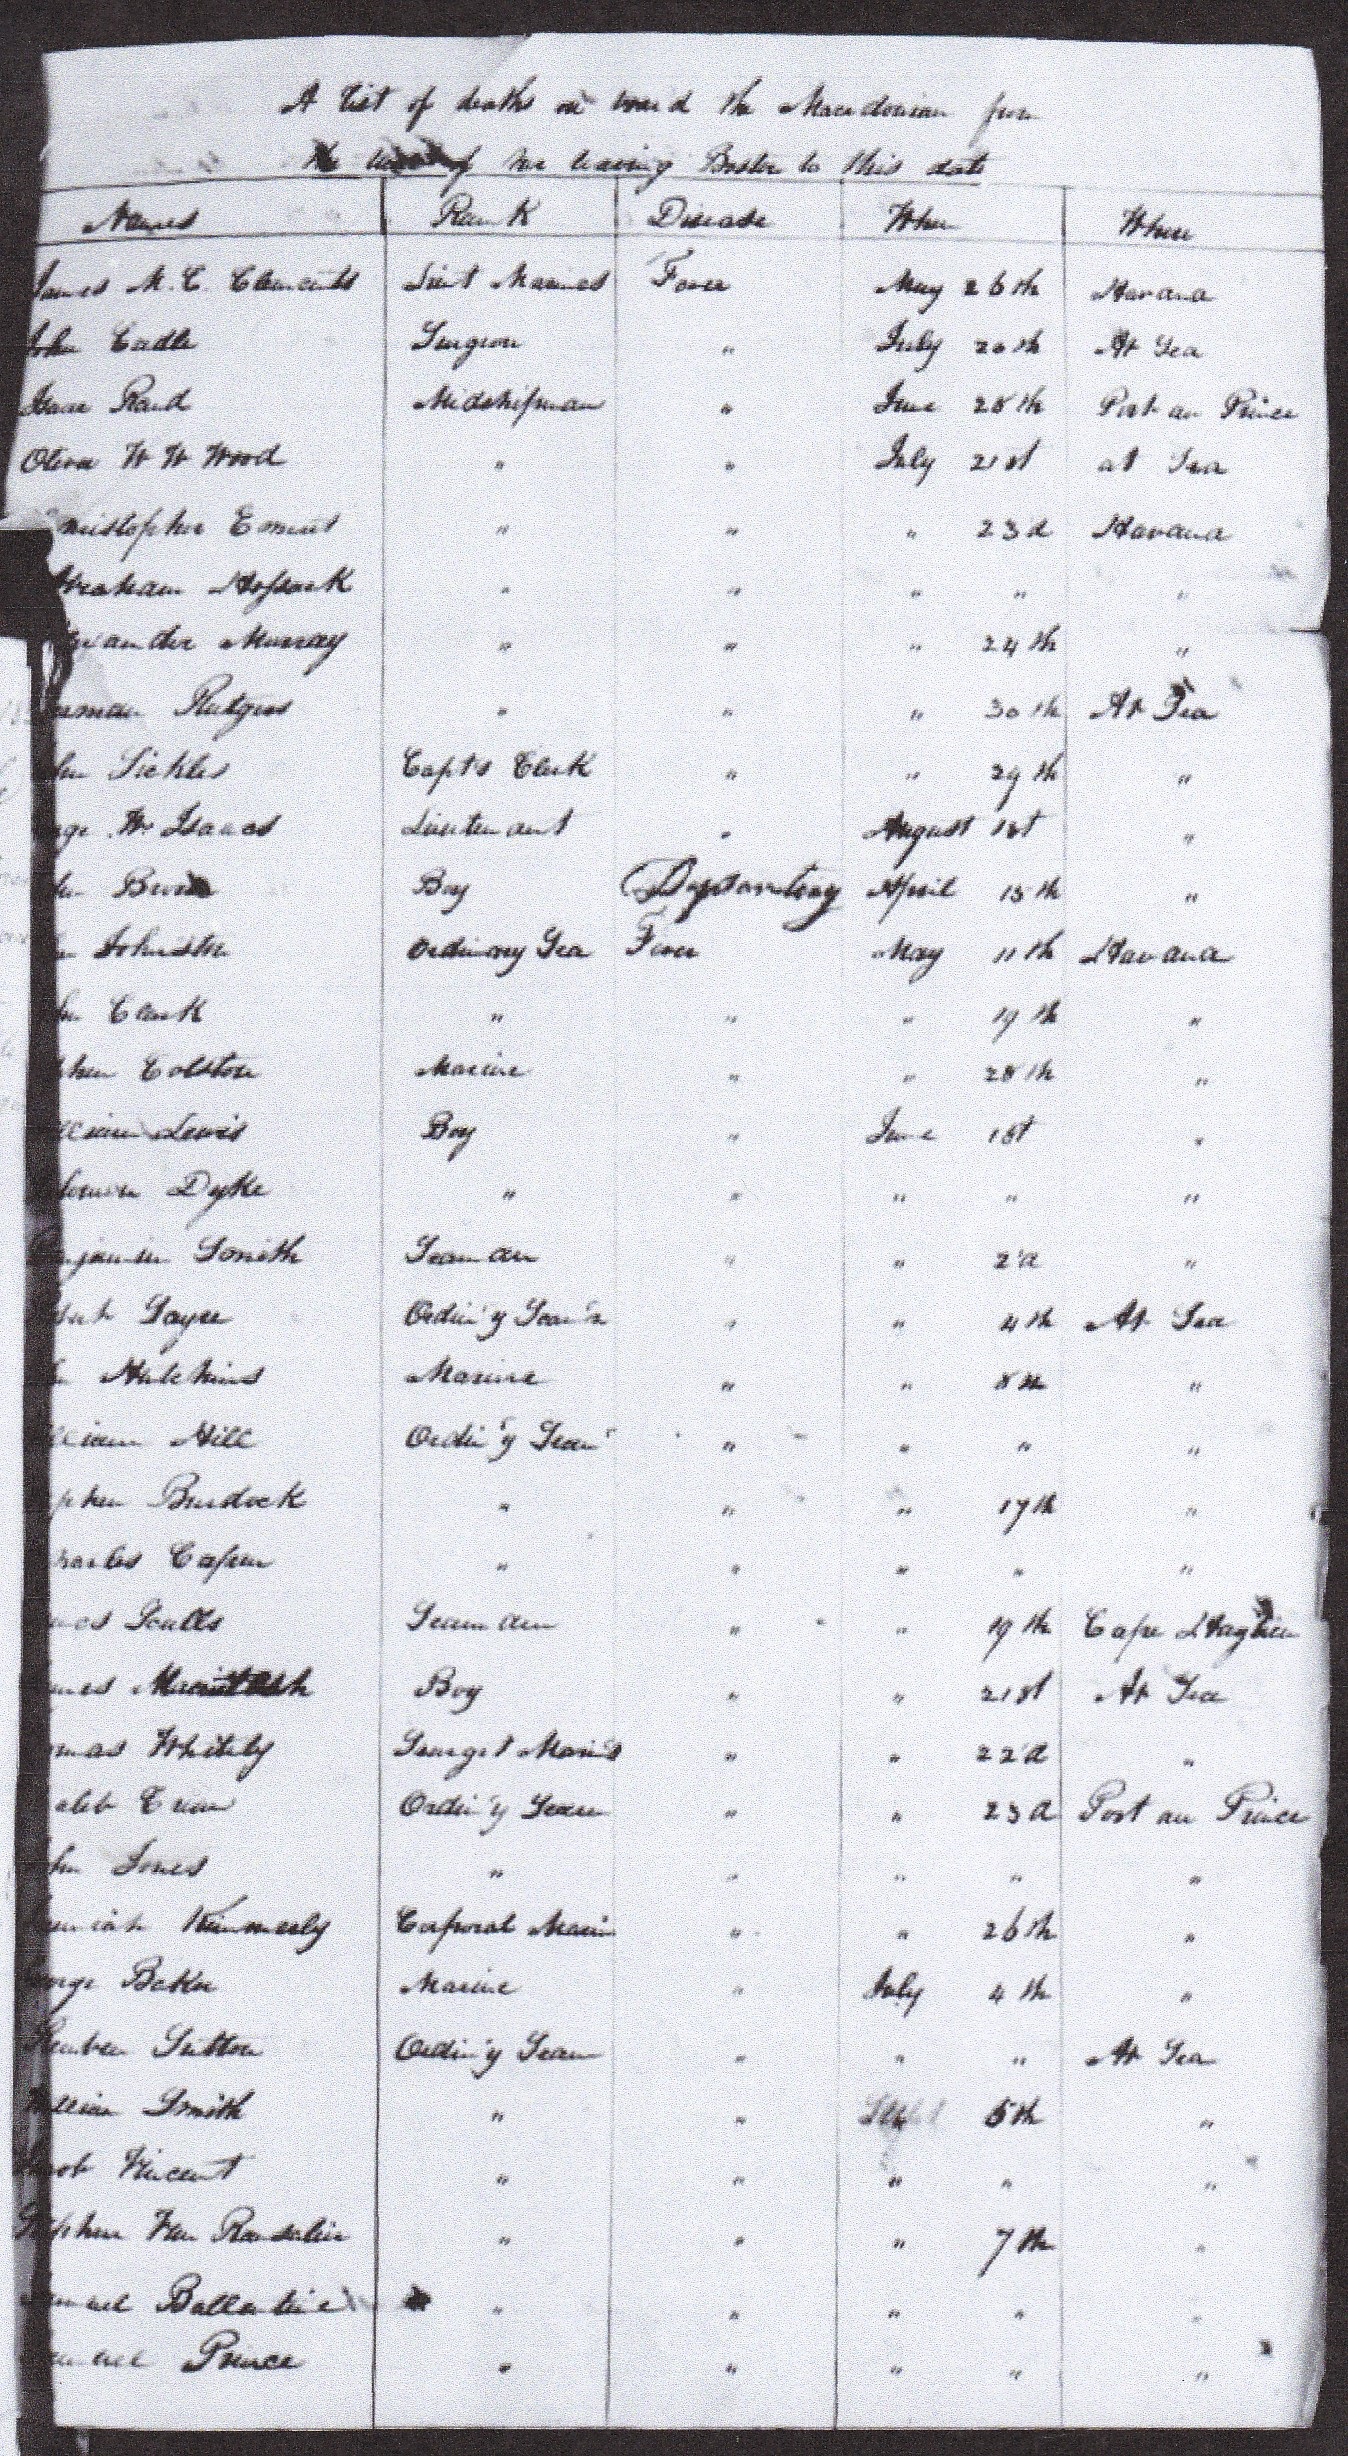 A list of deaths on board the Macedonian from
the time of her leaving Boston to this date
Names Rank Disease When Where
James M. C. Clements Lieut Marines Fever May 26th Havana
John Cadle Surgeon " July 20th At Sea
Isaac Rand Midshipman " June 28th Port au Prince
Oliver W W Wood " " July 21st at Sea
ristopher Emmet " " " 23d Havana
braham Hosack " " " " "
exander Murray " " " 24th "
erman Rutgers " " " 30th At Sea
hn Sickles Capts Clerk " " 29th "
orge W Isaacs Lieutenant " August 1st "
hn Boy April 15th "
n Johnston Ordinary Sea Fever May 11th Havana
hn Clark " " " 19th "
phen Colston Marine " " 28th "
lliam Lewis Boy " June 1st "
olomon Dyke " " " " "
enjamin Smith Seaman " " 2d "
Sayre Ordin'y Sea'n " " 4th At Sea
n Hutchins Marine " " 8th "
lliam Hill Ordin'y Sean " " " "
phen Burdock " " " 17th "
harles Capen " " " " "
mes Scalls Seaman " " 19th Cape
ames Boy " " 21st At Sea
omas Whitely Sergt Marin's " " 22d "
aleb Ordin'y Sean " " 23d Port au Prince
ohn Jones " " " " "
eremiah Kimmerly Corporal Marin " " 26th "
George Baker Marine " July 4th "
Reuben Sutton Ordin'y Seam " " " At Sea
William Smith " " 5th "
Jacob Vincent " " " " "
Stephen Van Ranselier " " " 7th "
amuel Ballantine " " " " "
amuel Prince " " " " "